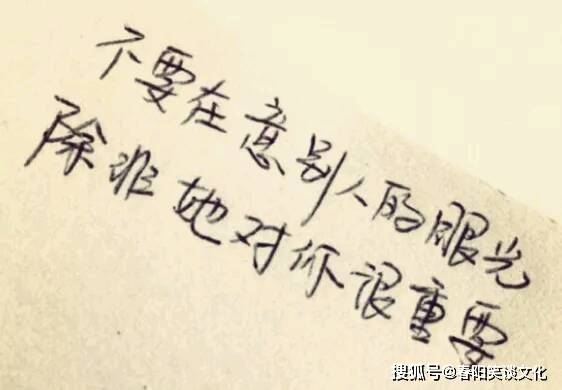 不要在意别人的眼光
除非她对你很重要
搜狐号@春阳笑谈文化